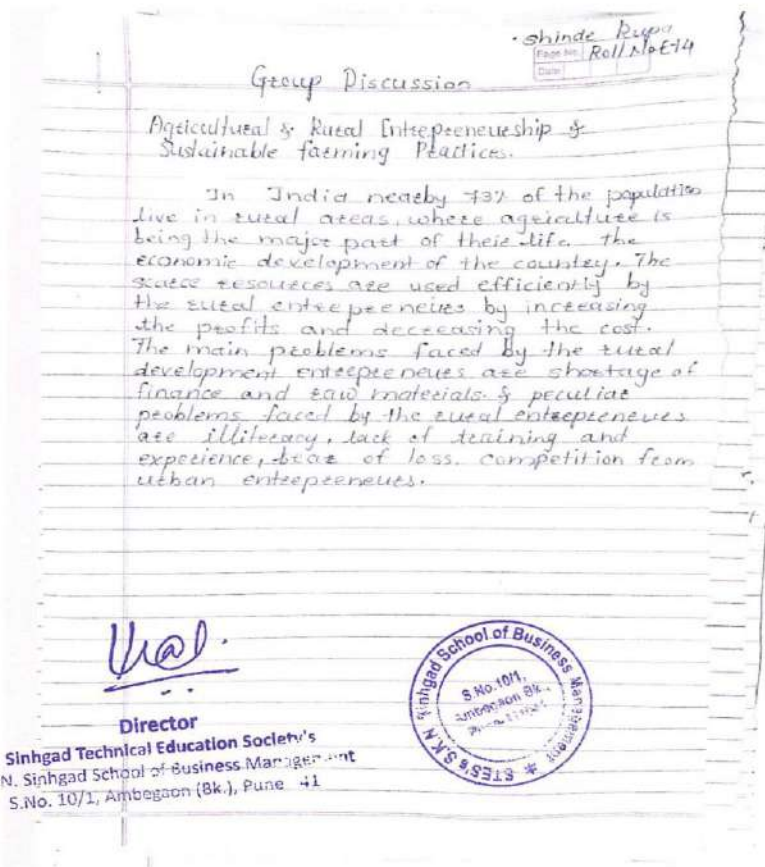 Shinde Rupa
Page No. Roll No E-14
Date
Group Discussion
Agricultural & Rural Entrepreneurship &
Sustainable farming Practices.
In India nearby 73% of the population
live in rural areas, where agriculture is
being the major part of their life. the
economic development of the country. The
scarce resources are used efficiently by
the rural entrepreneurs by increasing
the profits and decreasing the cost.
The main problems faced by the rural
development entrepreneurs are shortage of
finance and raw materials & peculiar
problems faced by the rural entrepreneurs
are illiteracy, lack of training and
experience, of loss. competition from
urban entrepreneurs.
Director
Sinhgad Technical Education Society's
N. Sinhgad School of Business Management
S.No. 10/1, Ambegaon (Bk.), Pune 41
STES's S.K.N Sinhgad School of Business Management
S.No.10/1,
Ambegaon Bk.,